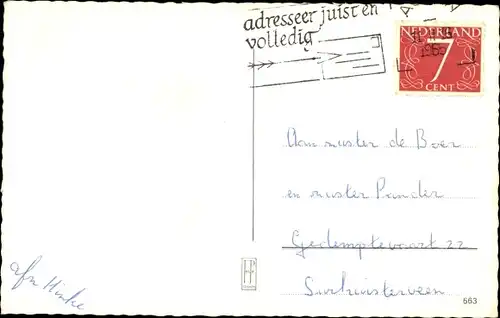 adresseer juist en
volledig
NEDERLAND
7
CENT
Aan zuster de Boer
en zuster Pander
Gedemptevaart 22
Surhuisterveen
afz Hinke
563